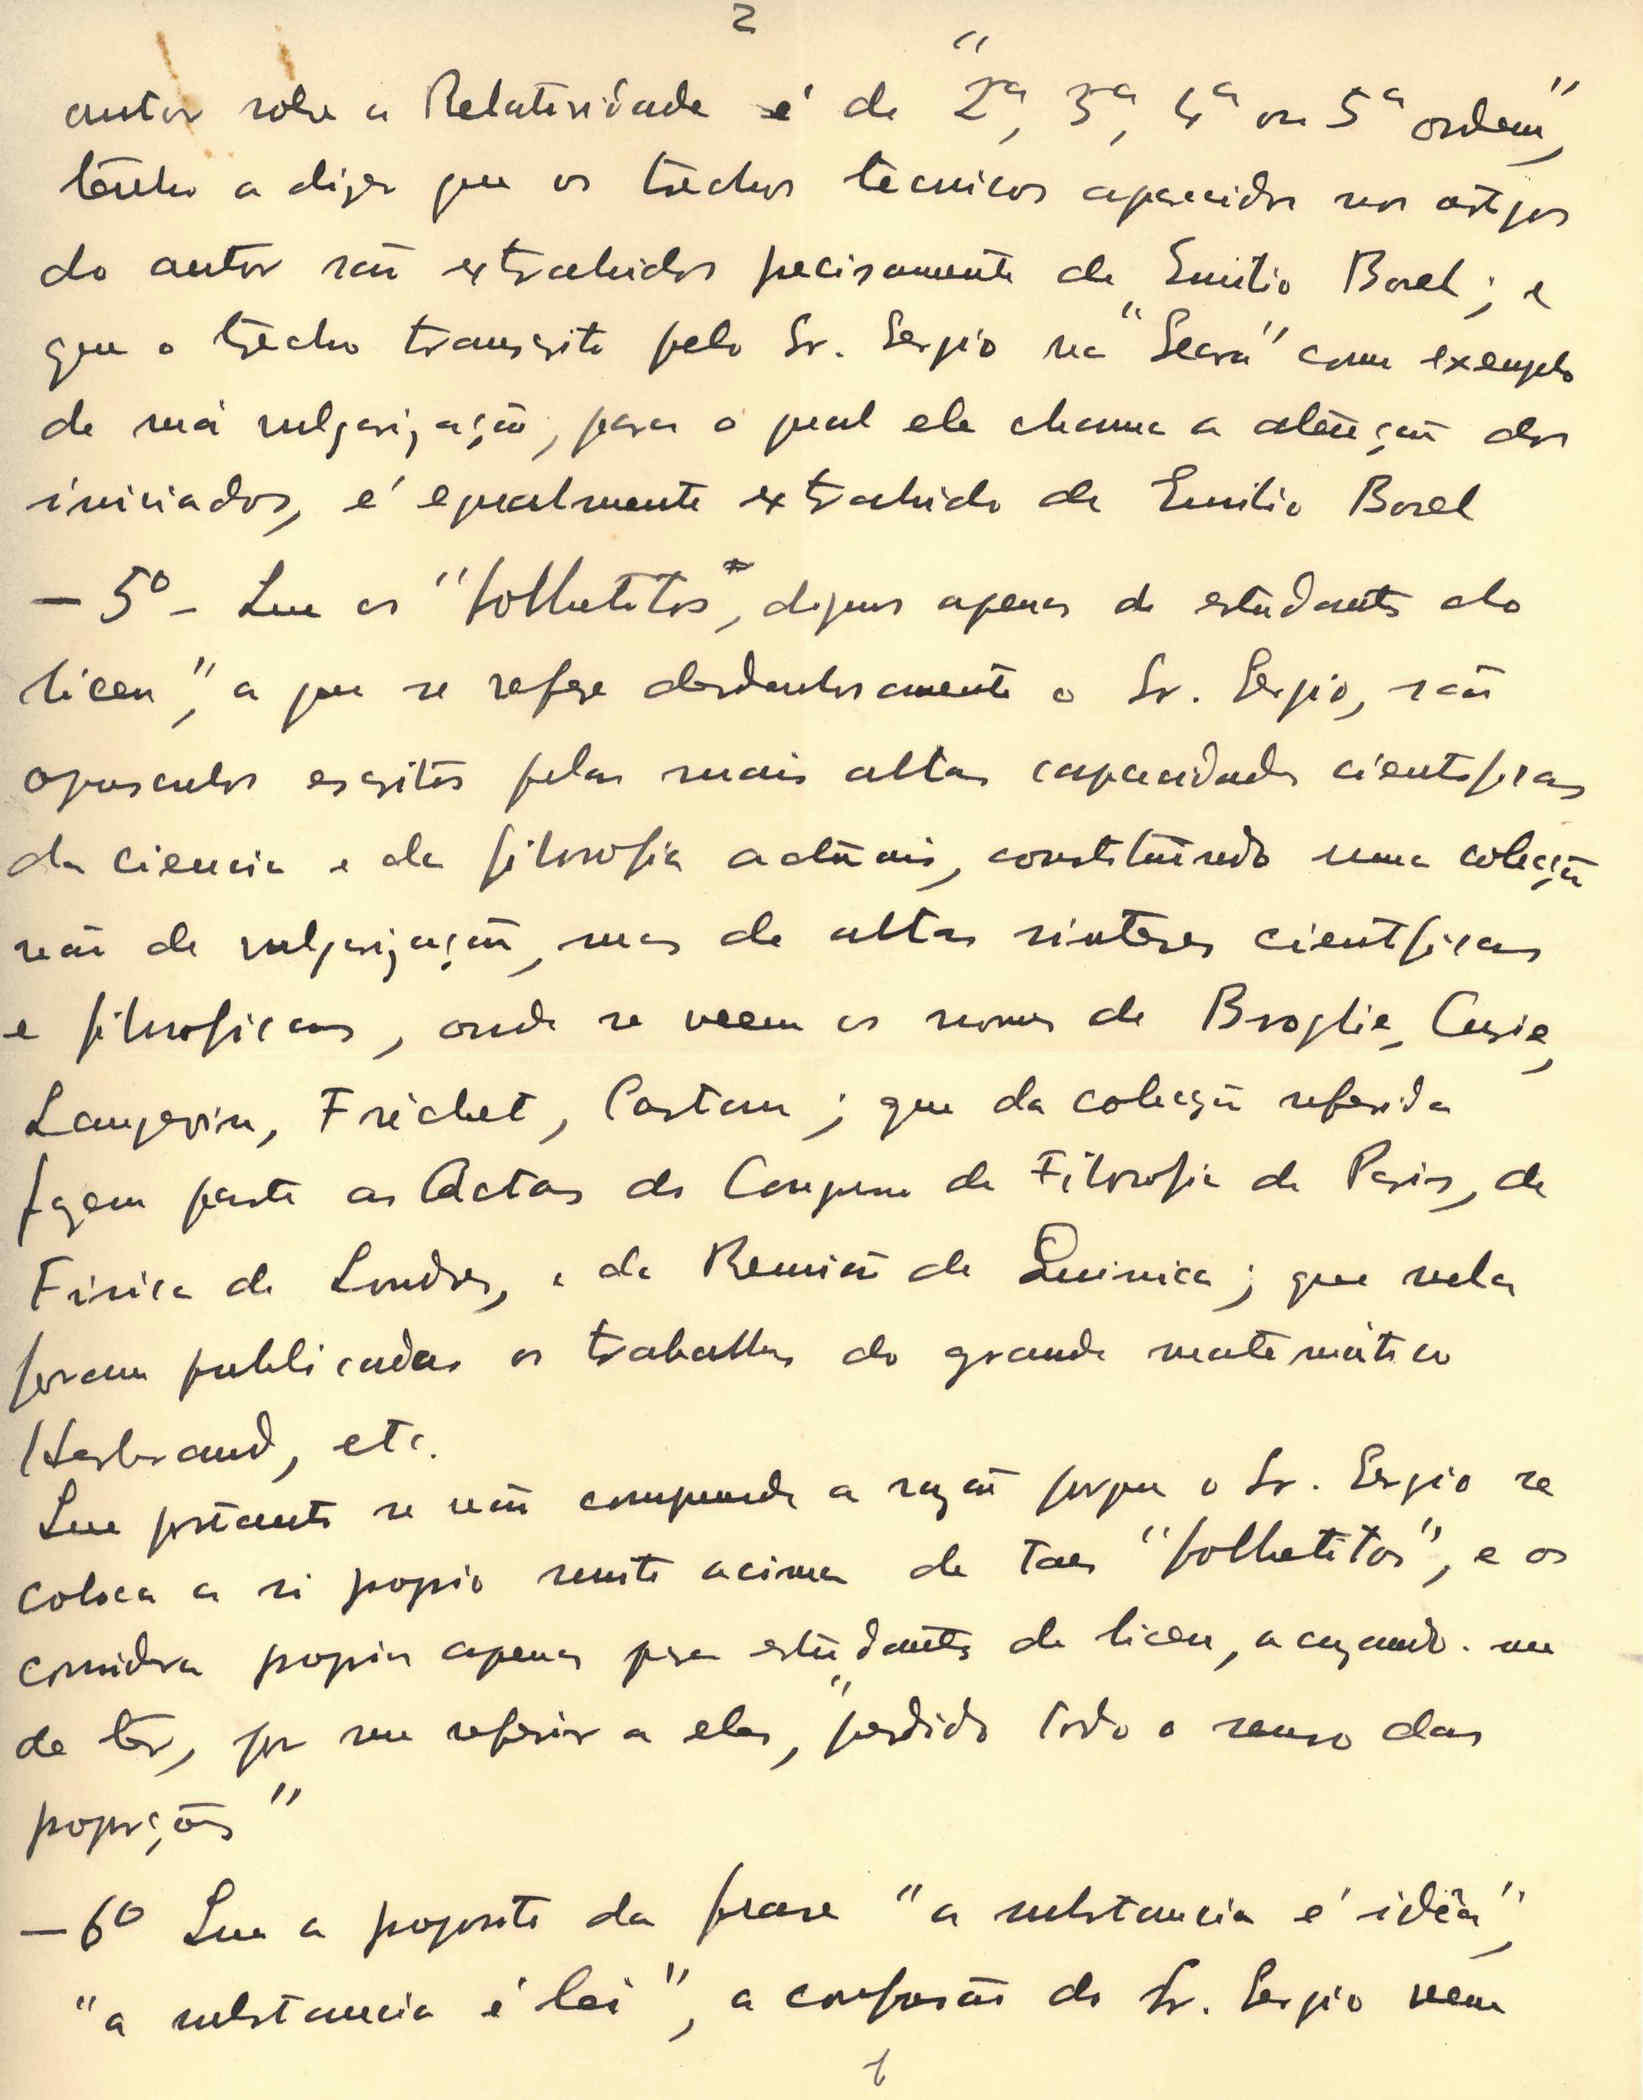 2
autor sobre a Relatividade é de "2ª, 3ª, 4ª ou 5ª ordem",
tenho a dizer que os trechos tecnicos aparecidos nos artigos
do autor são extrahidos precisamente de Emilio Borel; e
que o trecho transcrito pelo Sr. Sergio na "Seara" como exemplo
de má vulgarização, para o qual ele chama a atenção dos
iniciados, é egualmente extrahido de Emilio Borel
— 5º - Que os "folhetitos, dignos apenas de estudantes do
liceu", a que se refere desdenhosamente o Sr. Sergio, são
opusculos escritos pelas mais altas capacidades cientificas
da ciencia e da filosofia actuais, constituindo uma coleção
não de vulgarização, mas de altas sinteses cientificas
e filosoficas, onde se veem os nomes de Broglie, Curie,
Langevin, Fréchet, Cartan; que da coleção referida
fazem parte as Actas do Congresso de Filosofia de Paris, de
Fisica de Londres, e da Reunião de Quimica; que nela
foram publicadas os trabalhos do grande matemático
Herbrand, etc.
Que portanto se não compreende a razão porque o Sr. Sergio se
coloca a si proprio muito acima de taes "folhetitos", e os
considera proprios apenas para estudantes de liceu, acuzando-me
de ter, por me referir a eles, "perdido todo o senso das
proporções"
— 6º Que a proposito da frase "a substancia é idêa",
"a substancia é lei", a confusão do Sr. Sergio vem